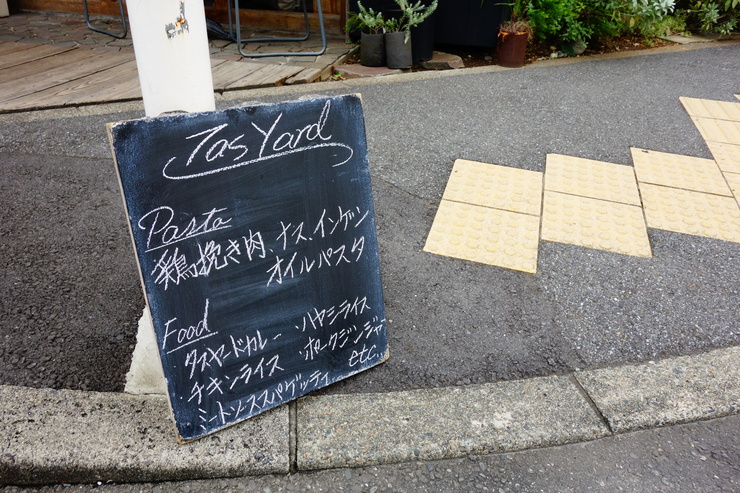 Tas Yard
Pasta
鶏挽き肉、ナス、インゲン
オイルパスタ
Food
タスヤードカレー ・ハヤシライス
チキンライス ・ポークジンジャー
ミートソーススパゲッティ etc..